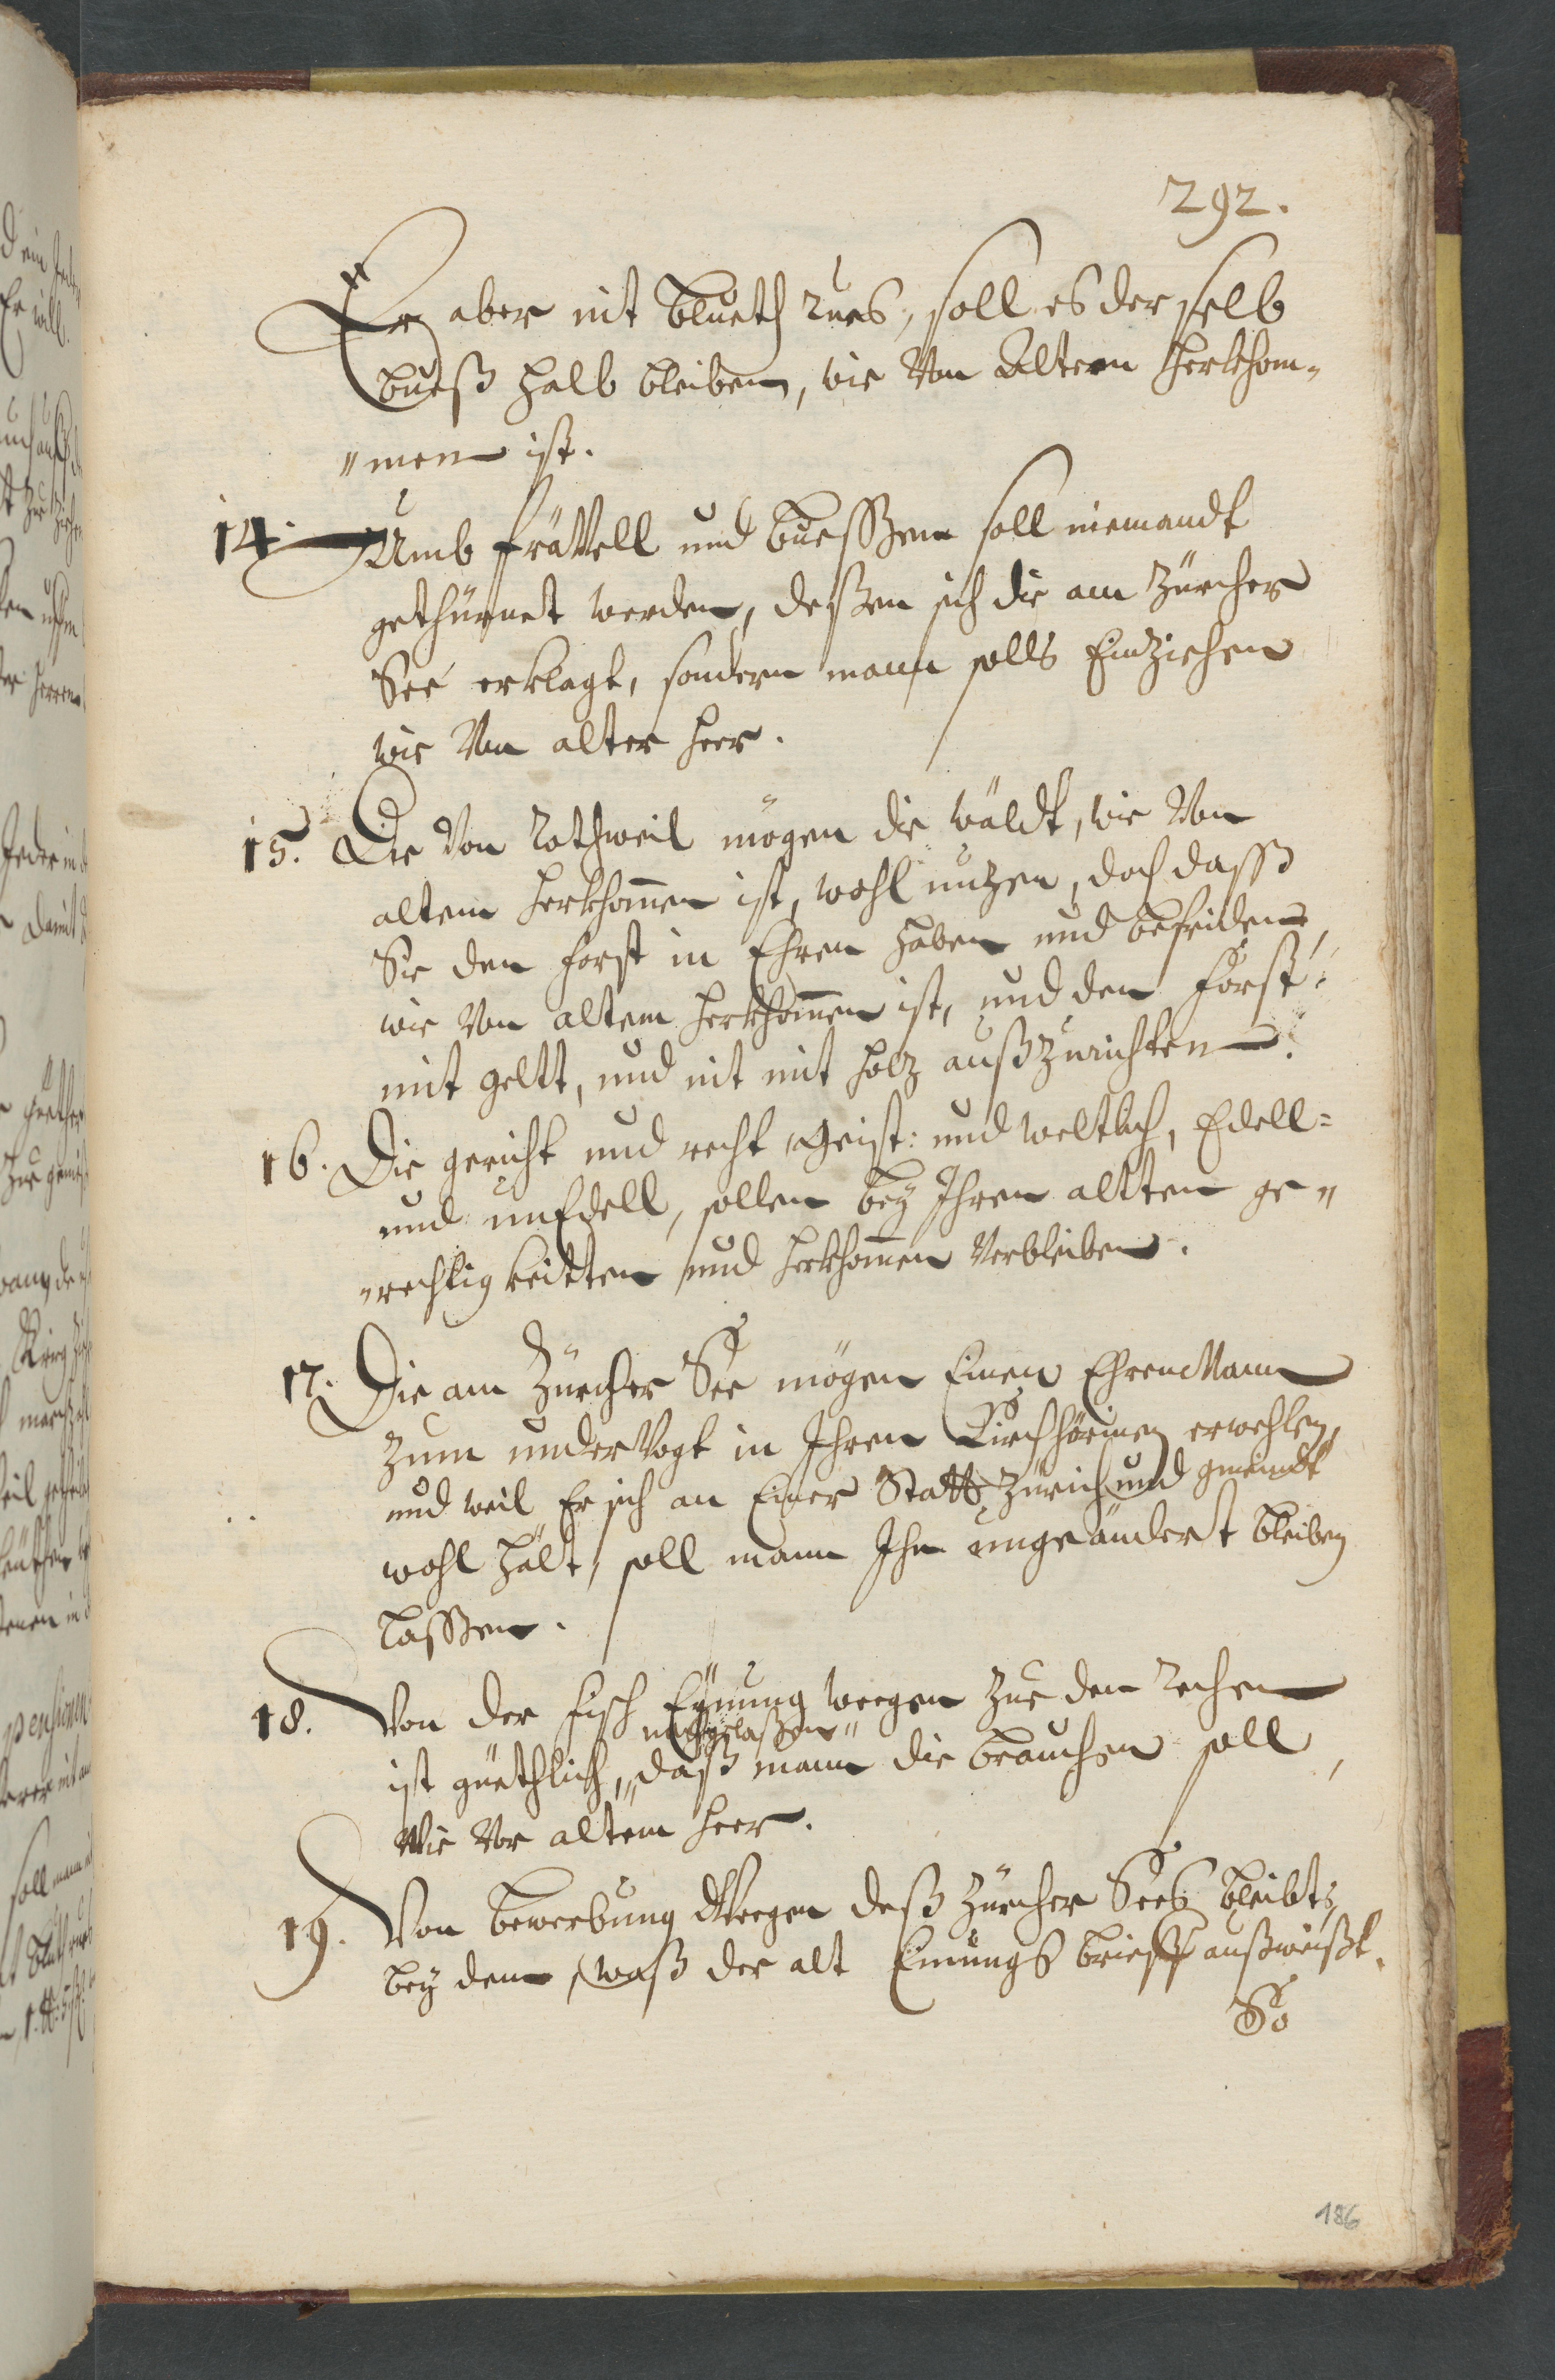 292.
Er aber nit blueth rues, soll es der selb
bueß halb bleiben, wie Von Altem herkhom-
"men ist.
14. Umb fräVell und buesSen soll niemandt
gethürnet werden, deßen sich die am Zürcher
See erklagt, sondern mann solls Einziehen
wie Von alter heer.
15. Die Von Rothweil mögen die wäldt, wie Von
altem herkhom̄en ist, wohl nuzen, doch dasß
Sie den forst in Ehren haben und befriden,
wie Von altem herkhom̄en ist, und den Forst
mit geltt, und nit mit holz außzurichten.
16. Die gericht und recht Geist: und weltlich, Edell=
und unEdell, sollen bey Ihren altten ge"
"rechtigkeitten und herkhom̄en Verbleiben.
17. Die am Zürcher See mögen Einen EhrenMann
zum underVogt in Ihren Kirchhörinen erwehlen,
und weil Er sich an Einer Statt Zürich und gmeindt
wohl hält, soll mann Ihn ungeändert bleiben
lasßen.
18. Von der fisch Eynung weegen zue den Rechen
nachgelaßen"
ist güethlich, "daß mann die brauchen soll,
Wie Vor altem heer.
19. Von bewerbung Weegen deß Zürcher Sees bleibts
bey dem, waß der alt Einungs brieff außweißt.
So
186